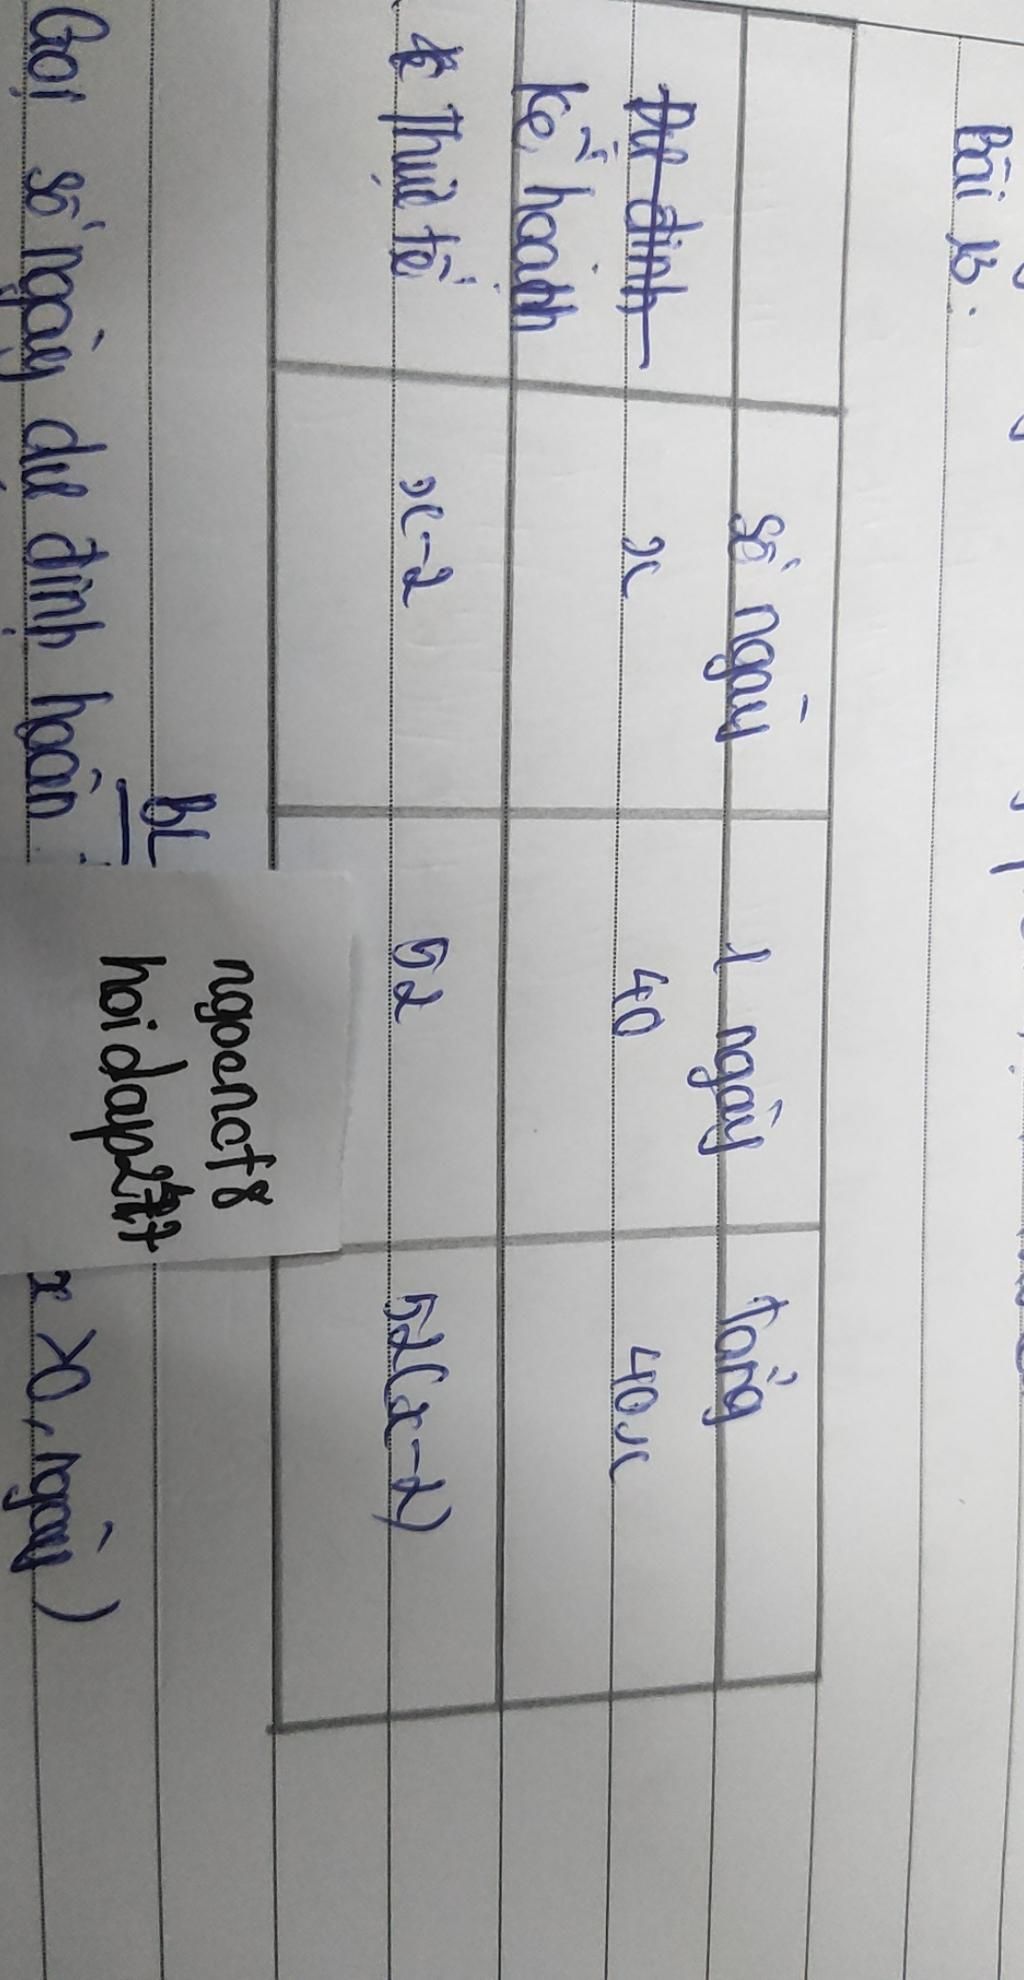 Bài 13:
số ngày 1 ngày Tổng
Dự định
Kế hoạch x 40 40x
Thực tế x-2 52 52(x-2)
BL
ngocnct8
Gọi số ngày dự định hoàn x >0, ngày)